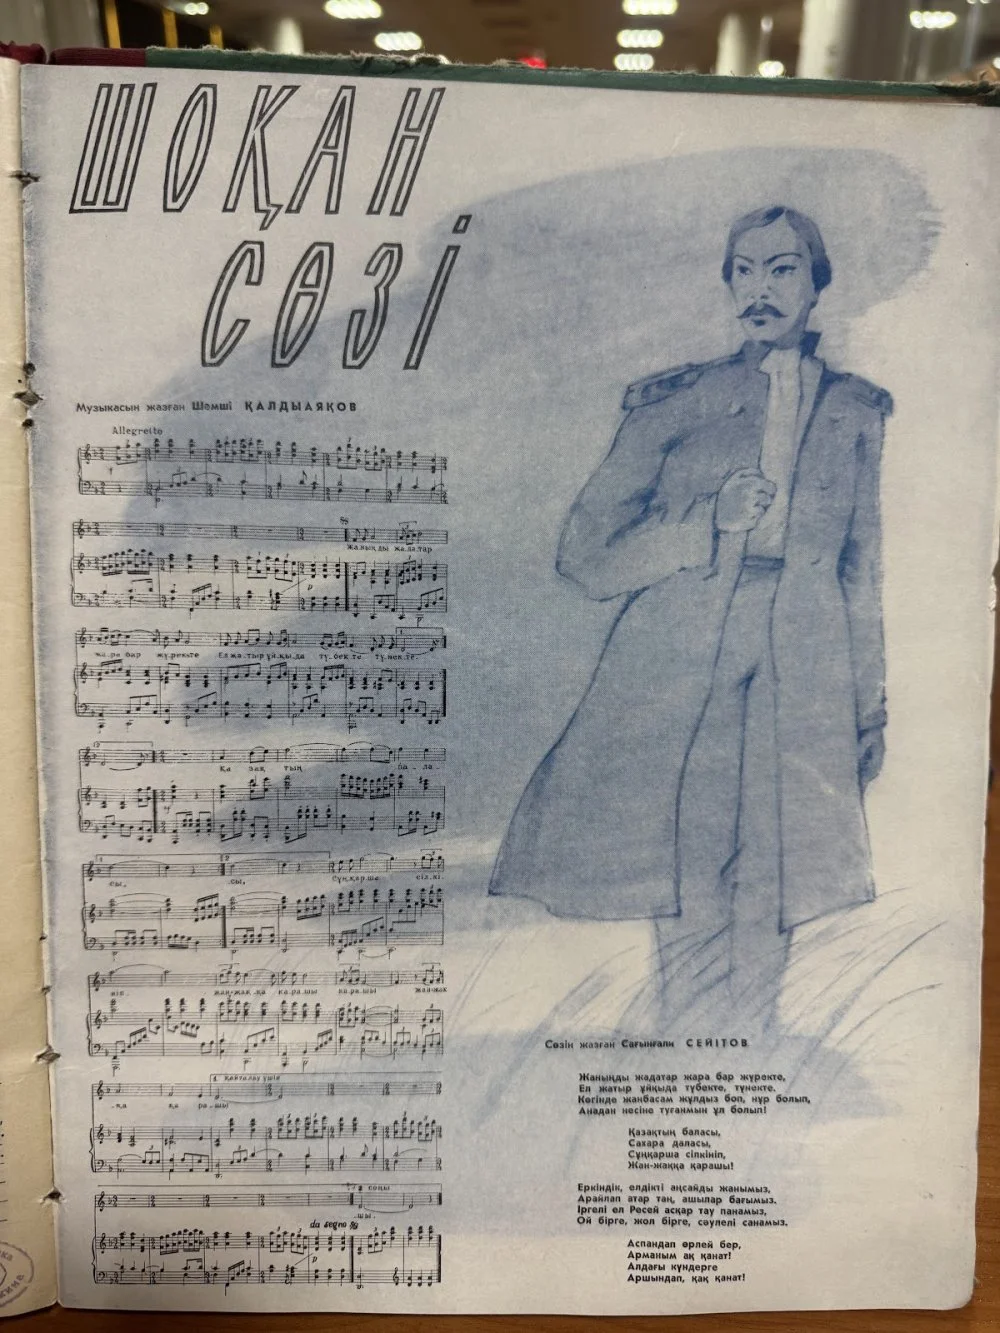 ШОҚАН
СӨЗІ
Музыкасын жазған Шәмші ҚАЛДЫАЯҚОВ
Allegretto
Жа.ның.ды жа.да.тар
жа.ра бар жү.ректе Ел жа.тыр ұй.қы.да тү.бек.те тү.нек.те.
Қа зақ тың ба - ла -
сы, сы, Сұң.қар.ша сіл.кі.
ніп. жан-жақ.қа қа.ра.шы қа.ра.шы жан-жақ
.қа қа ра.шы
1. қайталау үшін
2 соңы
.шы.
da segno
Сөзін жазған Сағынғали СЕЙІТОВ
Жаныңды жадатар жара бар жүректе,
Ел жатыр ұйқыда түбекте, түнекте.
Көгінде жанбасам жұлдыз боп, нұр болып,
Анадан несіне туғанмын ұл болып!
Қазақтың баласы,
Сахара даласы,
Сұңқарша сілкініп,
Жан-жаққа қарашы!
Еркіндік, елдікті аңсайды жанымыз,
Арайлап атар таң, ашылар бағымыз,
Іргелі ел Ресей асқар тау панамыз,
Ой бірге, жол бірге, сәулелі санамыз.
Аспандап өрлей бер,
Арманым ақ қанат!
Алдағы күндерге
Аршындап, қақ қанат!